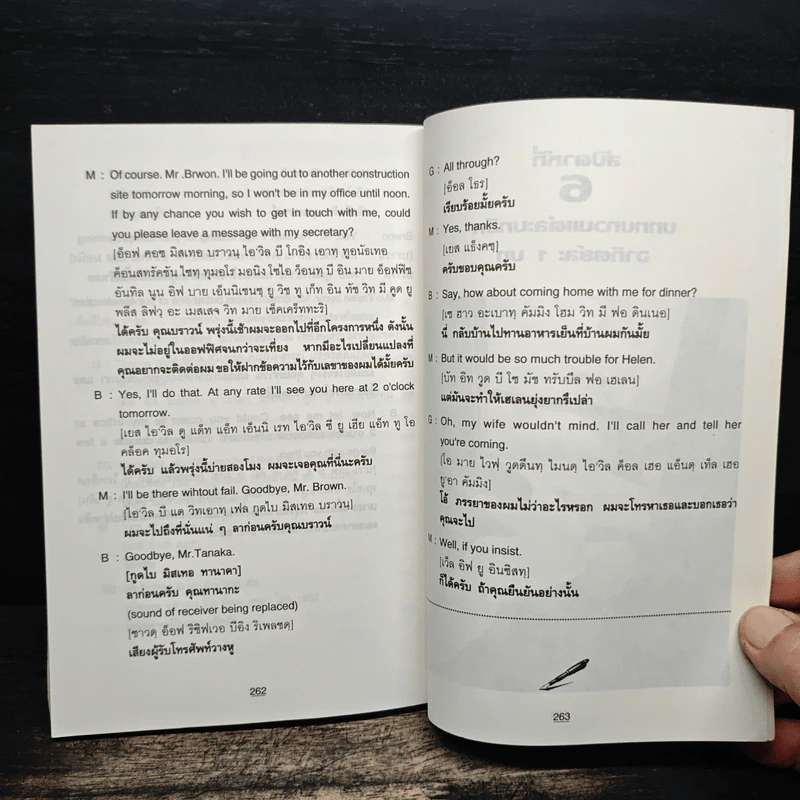 M : Of course. Mr .Brwon. I'll be going out to another construction
site tomorrow morning, so I won't be in my office until noon.
If by any chance you wish to get in touch with me, could
you please leave a message with my secretary?
[อ็อฟ คอซ มิสเทอ บราวนฺ ไอ'วิล บี โกอิง เอาทฺ ทูอนัธเทอ
ค็อนสทรัคชัน ไซทฺ ทุมอโร มอนิง โซไอ ว็อนทฺ บี อิน มาย อ็อฟฟิซ
อันทิล นูน อิฟ บาย เอ็นนิเชนซฺ ยู วิช ทู เก็ท อิน ทัช วิท มี คูด ยู
พลีส ลิฟวฺ อะ เมสเสจ วิท มาย เซ็คเคร็ททะริ]
ได้ครับ คุณบราวน์ พรุ่งนี้เช้าผมจะออกไปที่อีกโครงการหนึ่ง ดังนั้น
ผมจะไม่อยู่ในออฟฟิศจนกว่าจะเที่ยง หากมีอะไรเปลี่ยนแปลงที่
คุณอยากจะติดต่อผม ขอให้ฝากข้อความไว้กับเลขาของผมได้มั้ยครับ
B : Yes, I'll do that. At any rate I'll see you here at 2 o'clock
tomorrow.
[เยส ไอ'วิล ดู แด็ท แอ็ท เอ็นนิ เรท ไอ'วิล ซี ยู เฮีย แอ็ท ทู โอ
คล็อค ทุมอโร]
ได้ครับ แล้วพรุ่งนี้บ่ายสองโมง ผมจะเจอคุณที่นี่นะครับ
M : I'll be there wihtout fail. Goodbye, Mr. Brown.
[ไอ'วิล บี แด วิทเอาทฺ เฟล กูดไบ มิสเทอ บราวนฺ]
ผมจะไปถึงที่นั่นแน่ ๆ ลาก่อนครับคุณบราวน์
B : Goodbye, Mr.Tanaka.
[กูดไบ มิสเทอ ทานาคา]
ลาก่อนครับ คุณทานากะ
(sound of receiver being replaced)
[ซาวดฺ อ็อฟ ริซิฟเวอ บีอิง ริเพลซดฺ]
เสียงผู้รับโทรศัพท์วางหู
262
G : All through?
[อ็อล โธร]
เรียบร้อยมั้ยครับ
M : Yes, thanks.
[เยส แธ็งคซฺ]
ครับขอบคุณครับ
B : Say, how about coming home with me for dinner?
[เซ ฮาว อะเบาทฺ คัมมิง โฮม วิท มี ฟอ ดินเนอ]
นี่ กลับบ้านไปทานอาหารเย็นที่บ้านผมกันมั้ย
M : But it would be so much trouble for Helen.
[บัท อิท วูด บี โซ มัช ทรับบึล ฟอ เฮเลน]
แต่มันจะทำให้เฮเลนยุ่งยากรึเปล่า
G : Oh, my wife wouldn't mind. I'll call her and tell her
you're coming.
[โอ มาย ไวฟฺ วูดดึนทฺ ไมนดฺ ไอ'วิล ค็อล เฮอ แอ็นดฺ เท็ล เฮอ
ยู'อา คัมมิง]
โอ้ ภรรยาของผมไม่ว่าอะไรหรอก ผมจะโทรหาเธอและบอกเธอว่า
คุณจะไป
M : Well, if you insist.
[เว็ล อิฟ ยู อินซิสทฺ]
ก็ได้ครับ ถ้าคุณยืนยันอย่างนั้น
263